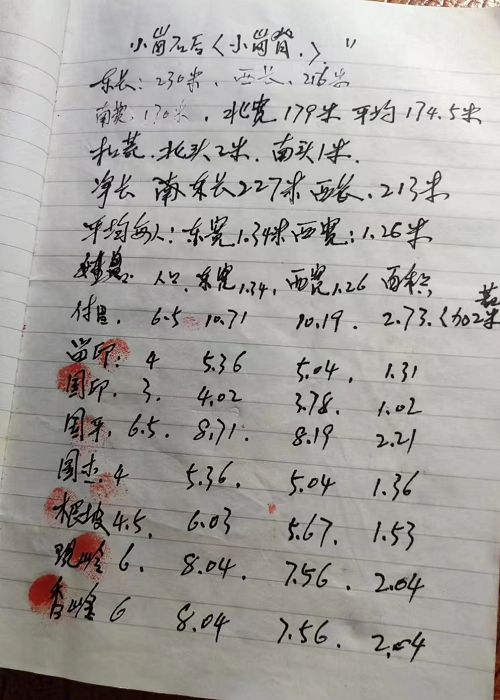 小岗石后〈小岗背.〉"
东长: 230米. 西长. 216米
南宽 170米. 北宽 179米 平均 174.5米
扣荒. 北头2米. 南头1米.
净长 南东长227米 西长. 213米
平均每人: 东宽1.34米 西宽: 1.26米
人口. 东宽1.34, 西宽1.26 面积
6.5 10.71 10.19. 2.73.〈加2米
留印: 4 5.36 5.04. 1.31
国印. 3. 4.02 3.78. 1.02
国平. 6.5. 8.71. 8.19 2.21
国杰. 4 5.36. 5.04 1.36
根坡 4.5. 6.03 5.67. 1.53
现岭 6. 8.04. 7.56. 2.04
香峰 6 8.04 7.56. 2.04